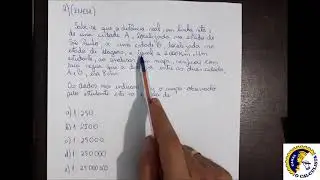 2) (ENEM)
Sabe-se que a distância real, em linha reta,
de uma cidade A, localizada no estado de
São Paulo, a uma cidade B, localizada no
estado de Alagoas, é igual a 2 000 km. Um
estudante, ao analisar um mapa, verificou com
sua régua que a distância entre as duas cidades,
A e B, era 8 cm.
Os dados nos indicam que o mapa observado
pelo estudante está na escala de
a) 1: 250
b) 1: 2500
c) 1: 25000
d) 1: 250 000
e) 1: 25 000 000